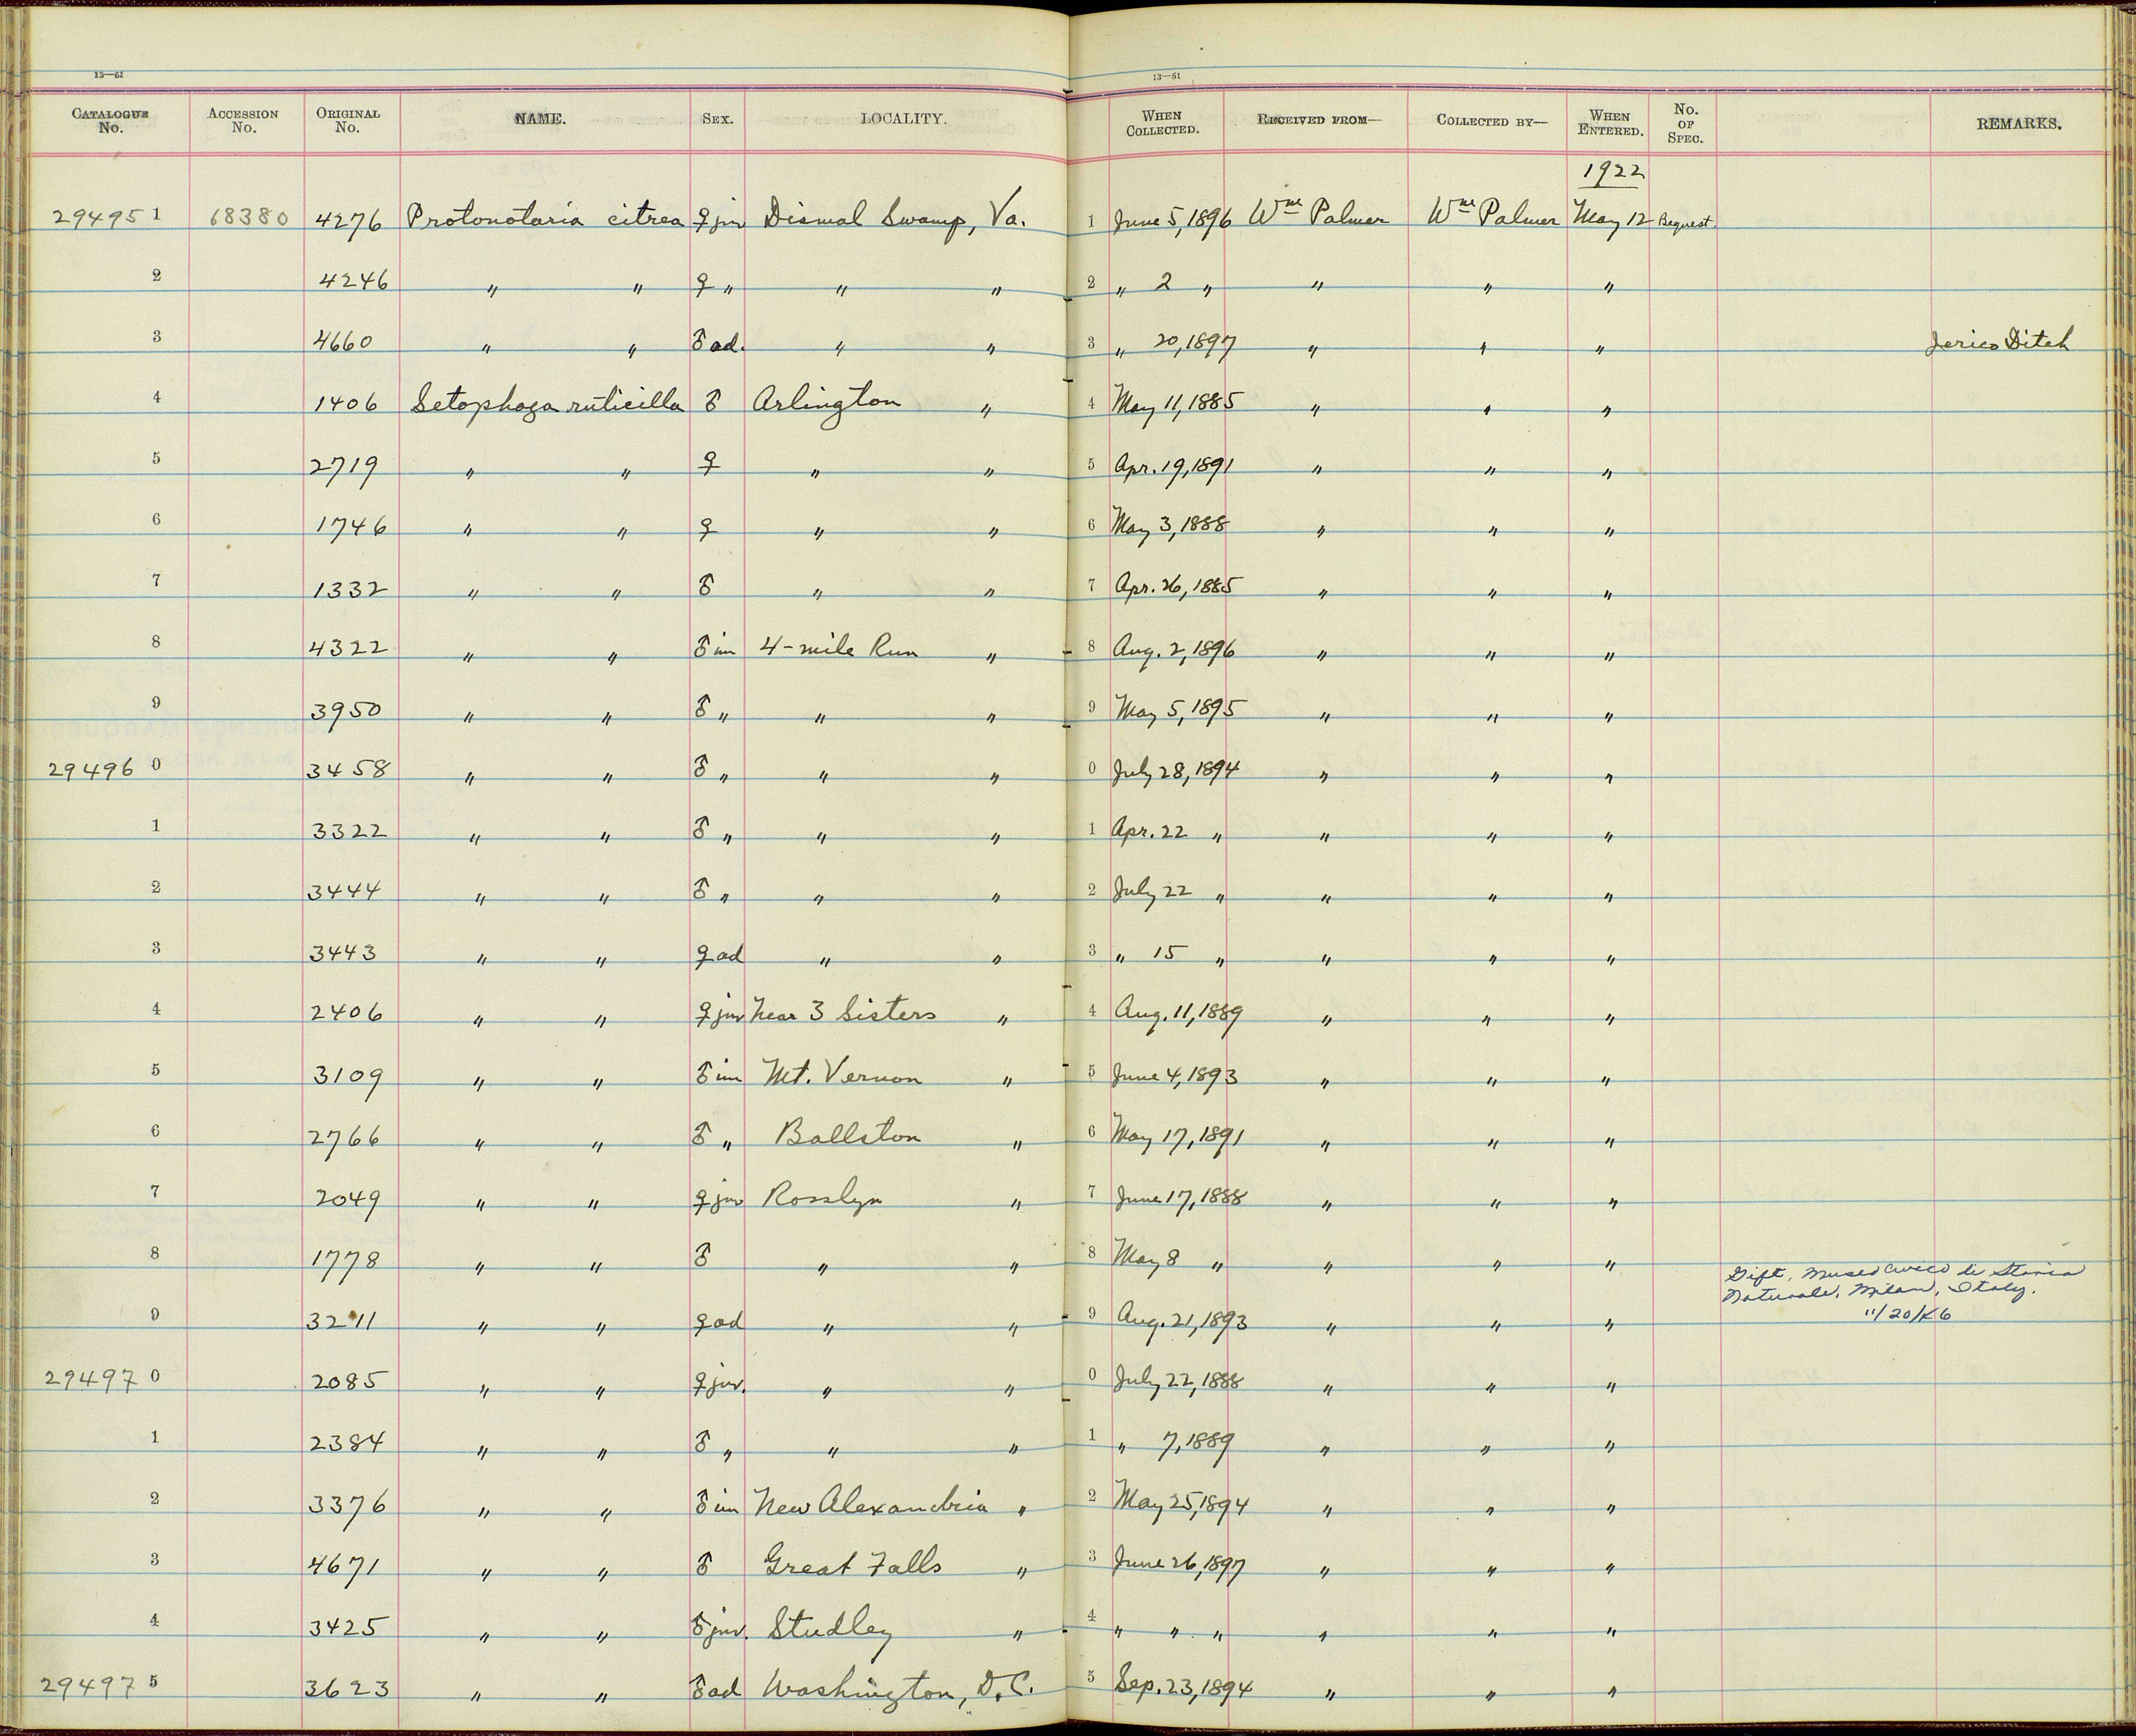 13—51 13—51
CATALOGUE No. ACCESSION No. ORIGINAL No. NAME. SEX. LOCALITY. WHEN COLLECTED. RECEIVED FROM— COLLECTED BY— WHEN ENTERED. No. OF SPEC. REMARKS.
1922
29495 1 68380 4276 Protonotaria citrea ♀ juv Dismal Swamp, Va. 1 June 5, 1896 Wm Palmer Wm Palmer May 12 Bequest.
2 4246 " " ♀ " " " 2 " 2 " " " "
3 4660 " " ♂ ad. " " 3 " 20, 1897 " " " Jerico Ditch
4 1406 Setophaga ruticilla ♂ Arlington " 4 May 11, 1885 " " "
5 2719 " " ♀ " " 5 Apr. 19, 1891 " " "
6 1746 " " ♀ " " 6 May 3, 1888 " " "
7 1332 " " ♂ " " 7 Apr. 26, 1885 " " "
8 4322 " " ♂ im 4-mile Run " 8 Aug. 2, 1896 " " "
9 3950 " " ♂ " " " 9 May 5, 1895 " " "
29496 0 3458 " " ♂ " " " 0 July 28, 1894 " " "
1 3322 " " ♂ " " " 1 Apr. 22 " " " "
2 3444 " " ♂ " " " 2 July 22 " " " "
3 3443 " " ♀ ad " " 3 " 15 " " " "
4 2406 " " ♀ juv near 3 Sisters " 4 Aug. 11, 1889 " " "
5 3109 " " ♂ im Mt. Vernon " 5 June 4, 1893 " " "
6 2766 " " ♂ " Ballston " 6 May 17, 1891 " " "
7 2049 " " ♀ juv Rosslyn " 7 June 17, 1888 " " "
8 1778 " " ♂ " " 8 May 8 " " " " Gift, Museo Civico di Storia
Naturale, Milan, Italy.
11/20/46
9 3211 " " ♀ ad " " 9 Aug. 21, 1893 " " "
29497 0 2085 " " ♀ juv. " " 0 July 22, 1888 " " "
1 2384 " " ♂ " " " 1 " 7, 1889 " " "
2 3376 " " ♂ im New Alexandria " 2 May 25, 1894 " " "
3 4671 " " ♂ Great Falls " 3 June 26, 1897 " " "
4 3425 " " ♂ juv. Studley " 4 " " " " " "
29497 5 3623 " " ♂ ad Washington, D.C. 5 Sep. 23, 1894 " " "